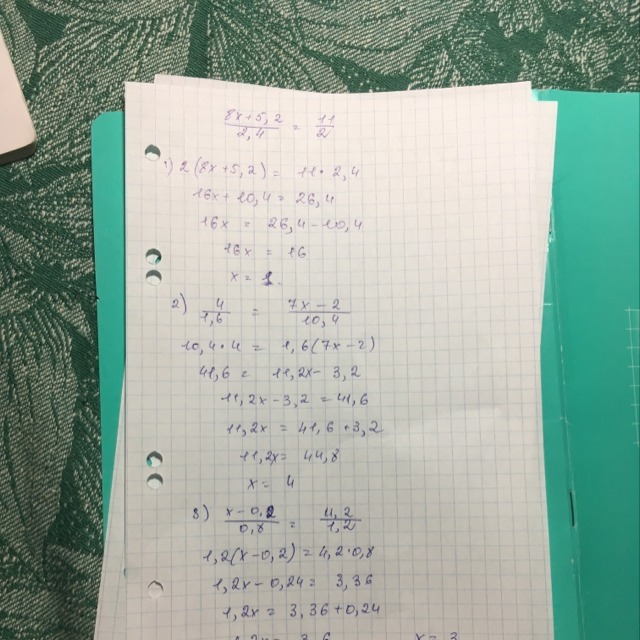 8x+5,2 / 2,4 = 11 / 2
1) 2(8x+5,2) = 11·2,4
16x+10,4 = 26,4
16x = 26,4-10,4
16x = 16
x = 1.
2) 4 / 1,6 = 7x-2 / 10,4
10,4·4 = 1,6(7x-2)
41,6 = 11,2x-3,2
11,2x-3,2 = 41,6
11,2x = 41,6+3,2
11,2x = 44,8
x = 4
3) x-0,2 / 0,8 = 4,2 / 1,2
1,2(x-0,2) = 4,2·0,8
1,2x-0,24 = 3,36
1,2x = 3,36+0,24
1,2x = 3,6 x = 3